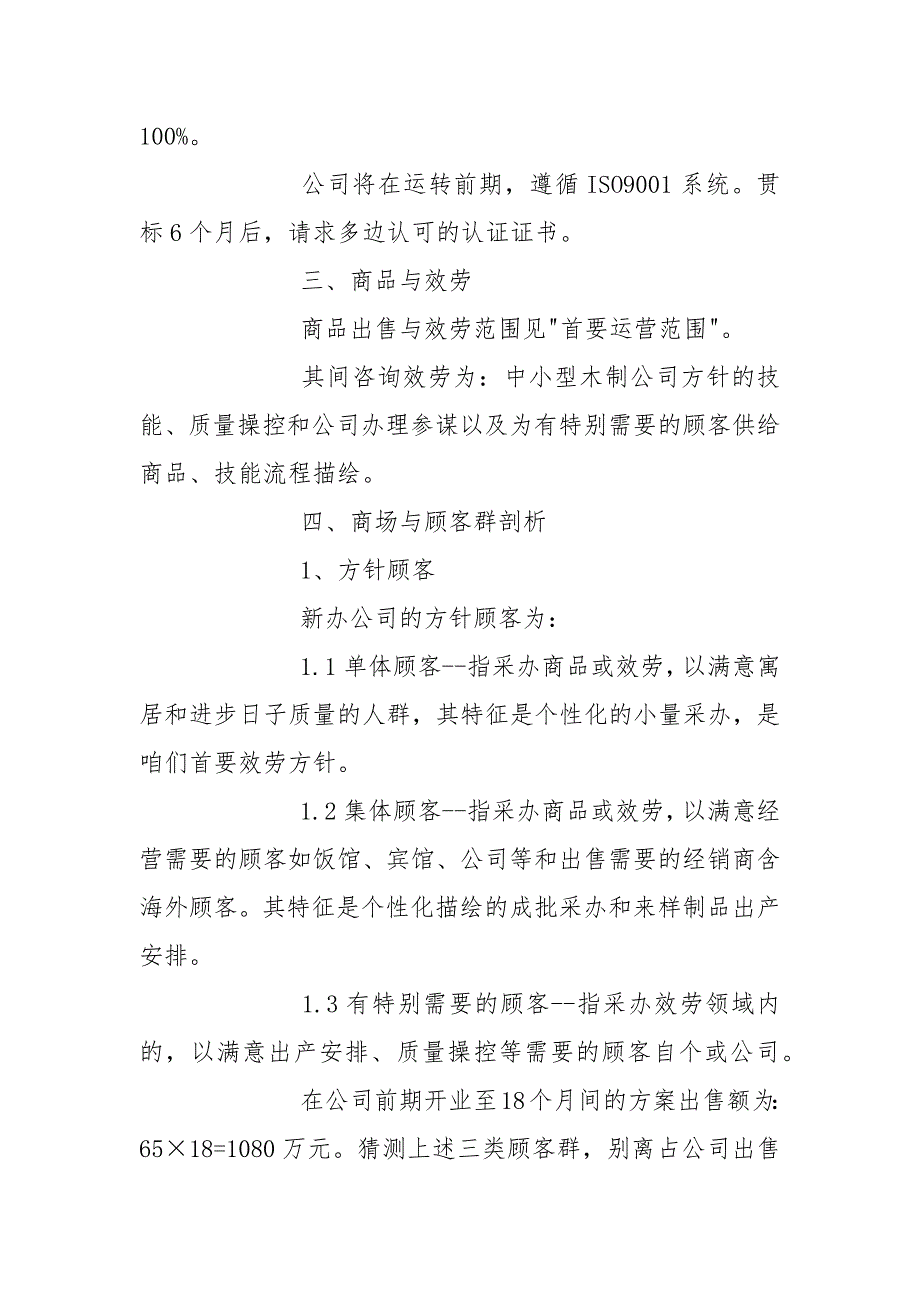 100%。
公司将在运转前期，遵循 ISO9001 系统。贯
标 6 个月后，请求多边认可的认证证书。
三、商品与效劳
商品出售与效劳范围见"首要运营范围"。
其间咨询效劳为：中小型木制公司方针的技
能、质量操控和公司办理参谋以及为有特别需要的顾客供给
商品、技能流程描绘。
四、商场与顾客群剖析
1、方针顾客
新办公司的方针顾客为：
1.1 单体顾客--指采办商品或效劳，以满意寓
居和进步日子质量的人群，其特征是个性化的小量采办，是
咱们首要效劳方针。
1.2 集体顾客--指采办商品或效劳，以满意经
营需要的顾客如饭馆、宾馆、公司等和出售需要的经销商含
海外顾客。其特征是个性化描绘的成批采办和来样制品出产
安排。
1.3 有特别需要的顾客--指采办效劳领域内
的，以满意出产安排、质量操控等需要的顾客自个或公司。
在公司前期开业至 18 个月间的方案出售额为：
65×18=1080 万元。猜测上述三类顾客群，别离占公司出售